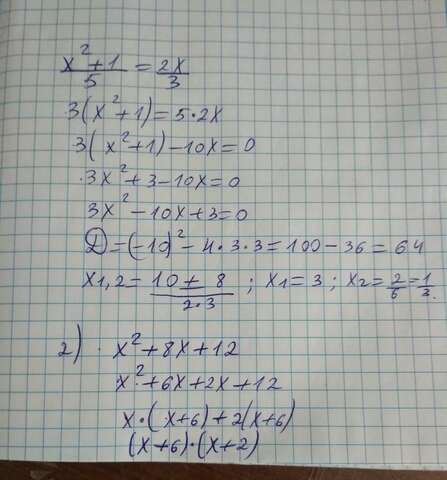 x²+1/5 = 2x/3
3(x²+1)=5·2x
3(x²+1)-10x=0
3x²+3-10x=0
3x²-10x+3=0
D=(-10)²-4·3·3=100-36=64
x1,2=10±8/2·3; x1=3; x2=2/6=1/3.
2) x²+8x+12
x²+6x+2x+12
x·(x+6)+2(x+6)
(x+6)·(x+2)